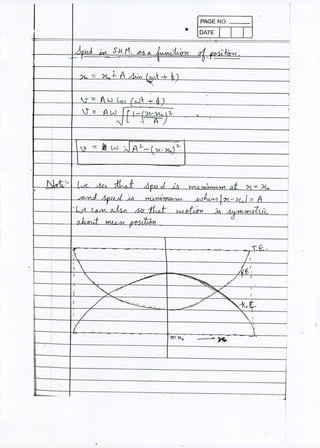 PAGE NO.
DATE
Speed in S.H.M. as a function of position.
x = x₀ + A sin (ωt + ϕ)
v = Aω cos (ωt + ϕ)
v = Aω √[1-(x-x₀)²/(A)]
v = ω √A²-(x-x₀)²
Note:- We see that speed is maximum at x = x₀
and speed is minimum when |x-x₀| = A
We can also see that motion is symmetric
about mean position.
T.E.
P.E.
K.E.
x₀
x